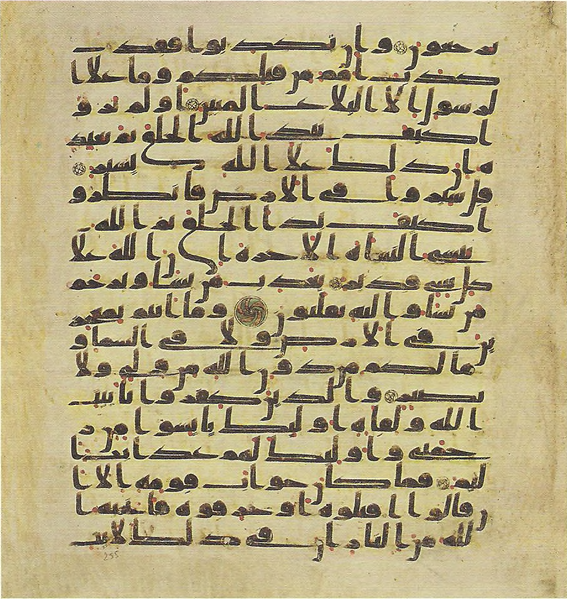 ترجعون وان تكذبوا فقد
كذب امم من قبلكم وما على ا
لرسول الا البلغ المبين اولم يرو
ا كيف يبدئ الله الخلق ثم يعيد
ه ان ذلك على الله يسير
قل سيروا في الارض فانظرو
ا كيف بدا الخلق ثم الله
ينشئ النشاة الاخرة ان الله على
كل شي قدير يعذب من يشا ويرحم
من يشا واليه تقلبون وما انتم بمعجز
ين في الارض ولا في السما و
ما لكم من دون الله من ولي ولا
نصير والذين كفروا بايت
الله ولقايه اوليك يئسوا من ر
حمتي واوليك لهم عذاب ا
ليم فما كان جواب قومه الا ا
ن قالوا اقتلوه او حرقوه فانجيه ا
لله من النار ان في ذلك لايت
255